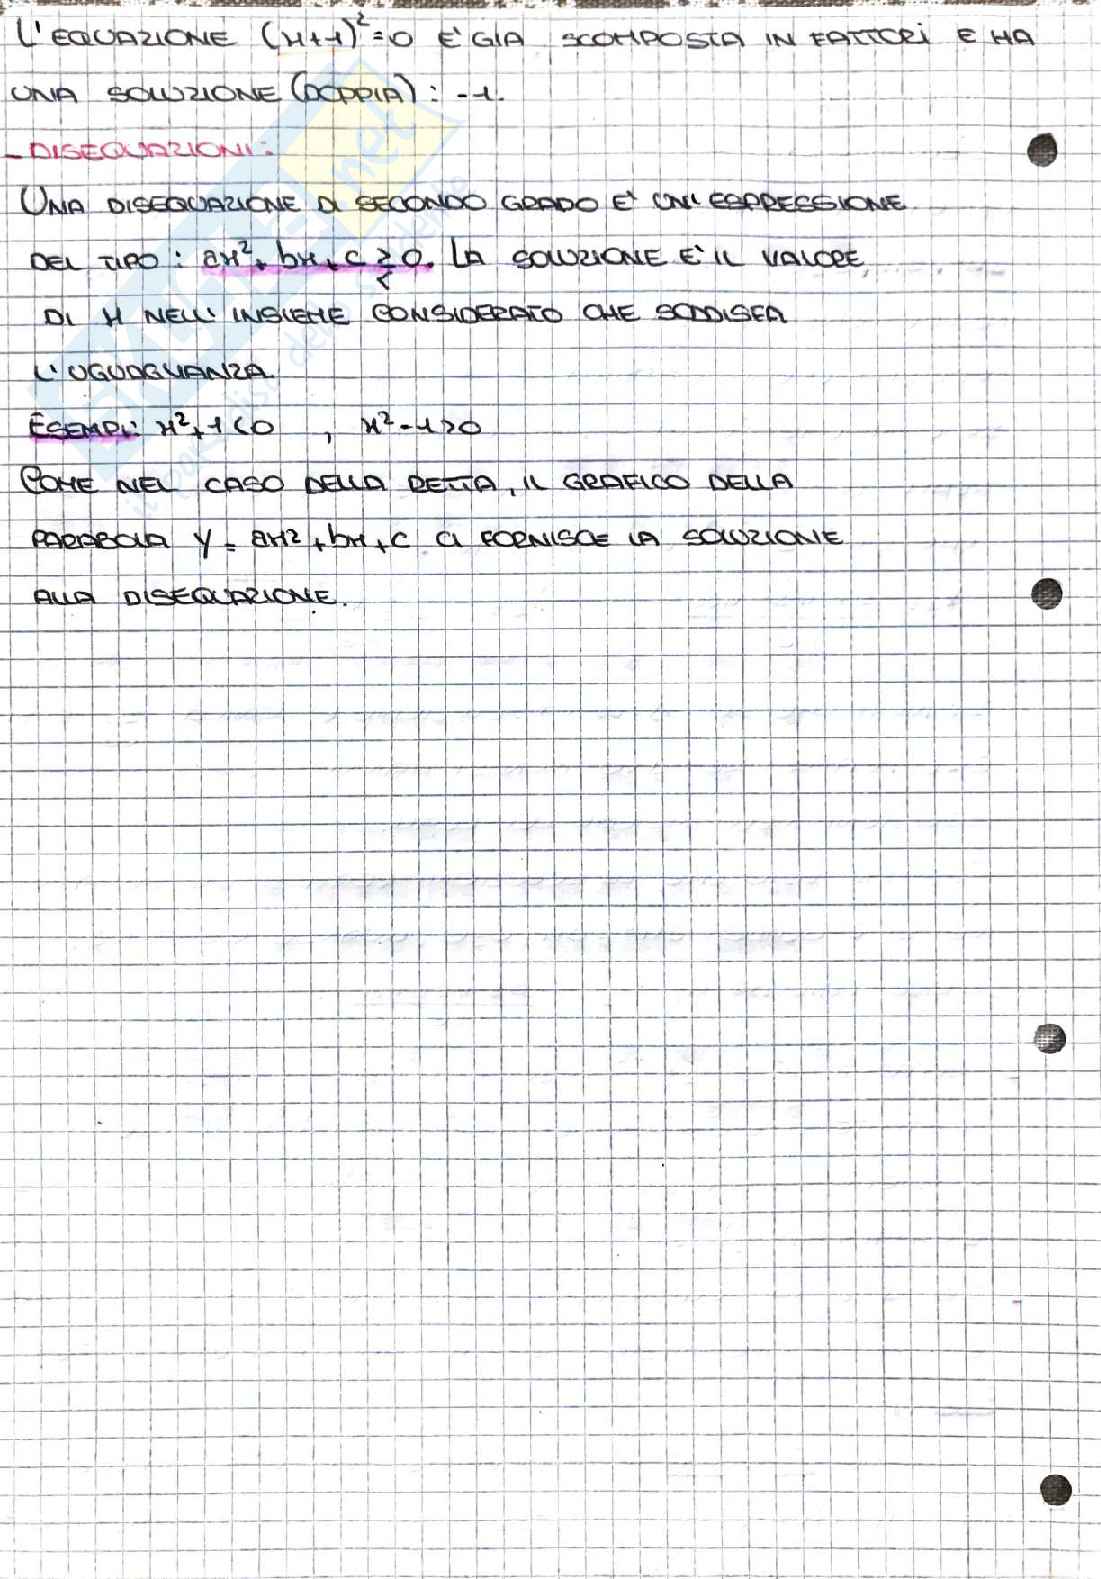 L'EQUAZIONE (x+1)²=0 E' GIA SCOMPOSTA IN FATTORI E HA
UNA SOLUZIONE (DOPPIA): -1.
- DISEQUAZIONI:
UNA DISEQUAZIONE DI SECONDO GRADO E' UN'ESPRESSIONE
DEL TIPO: ax²+bx+c ≷ 0. LA SOLUZIONE E' IL VALORE
DI x NELL'INSIEME CONSIDERATO CHE SODDISFA
L'UGUAGLIANZA.
ESEMPI: x²+1<0 , x²-1>0
COME NEL CASO DELLA RETTA, IL GRAFICO DELLA
PARABOLA y=ax²+bx+c CI FORNISCE LA SOLUZIONE
ALLA DISEQUAZIONE.